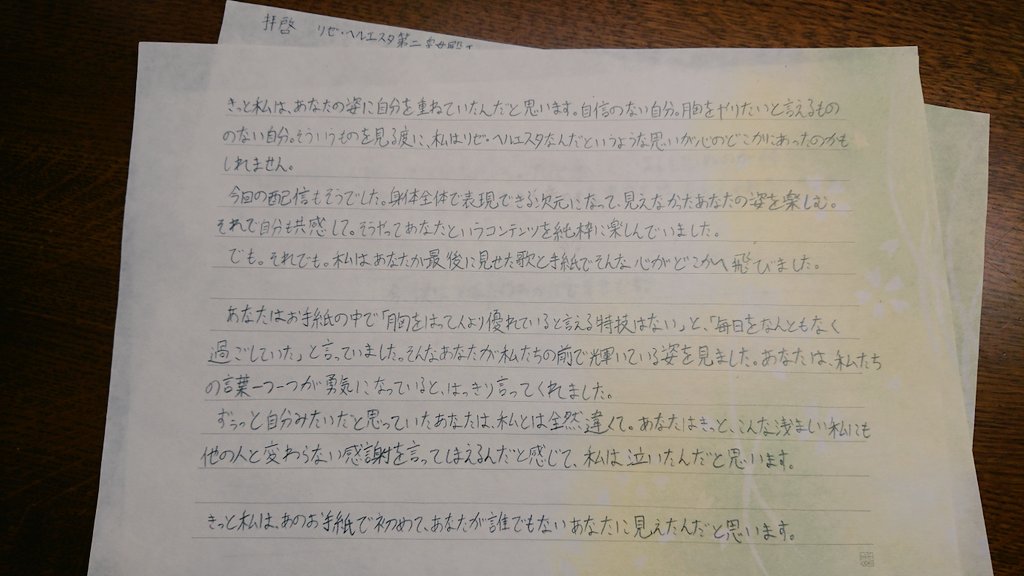 拝啓 リゼ・ヘルエスタ第二皇女殿下
きっと私は、あなたの姿に自分を重ねていたんだと思います。自信のない自分。胸をはりたいと言えるもの
のない自分。そういうものを見る度に、私はリゼ・ヘルエスタなんだというような思いが心のどこかにあったのかも
しれません。
今回の配信もそうでした。身体全体で表現できる次元になって、見えなかったあなたの姿を楽しむ。
それで自分も共感して。そうやってあなたというコンテンツを純粋に楽しんでいました。
でも。それでも。私はあなたが最後に見せた歌と手紙でそんな心がどこかへ飛びました。
あなたはお手紙の中で「胸をはって人より優れていると言える特技はない」と、「毎日をなんともなく
過ごしていた」と言っていました。そんなあなたが私たちの前で輝いている姿を見ました。あなたは、私たち
の言葉一つ一つが勇気になっていると、はっきり言ってくれました。
ずぅっと自分みたいだと思っていたあなたは、私とは全然違くて。あなたはきっと、こんな浅ましい私にも
他の人と変わらない感謝を言ってしまえるんだと感じて、私は泣いたんだと思います。
きっと私は、あのお手紙で初めて、あなたが誰でもないあなたに見えたんだと思います。